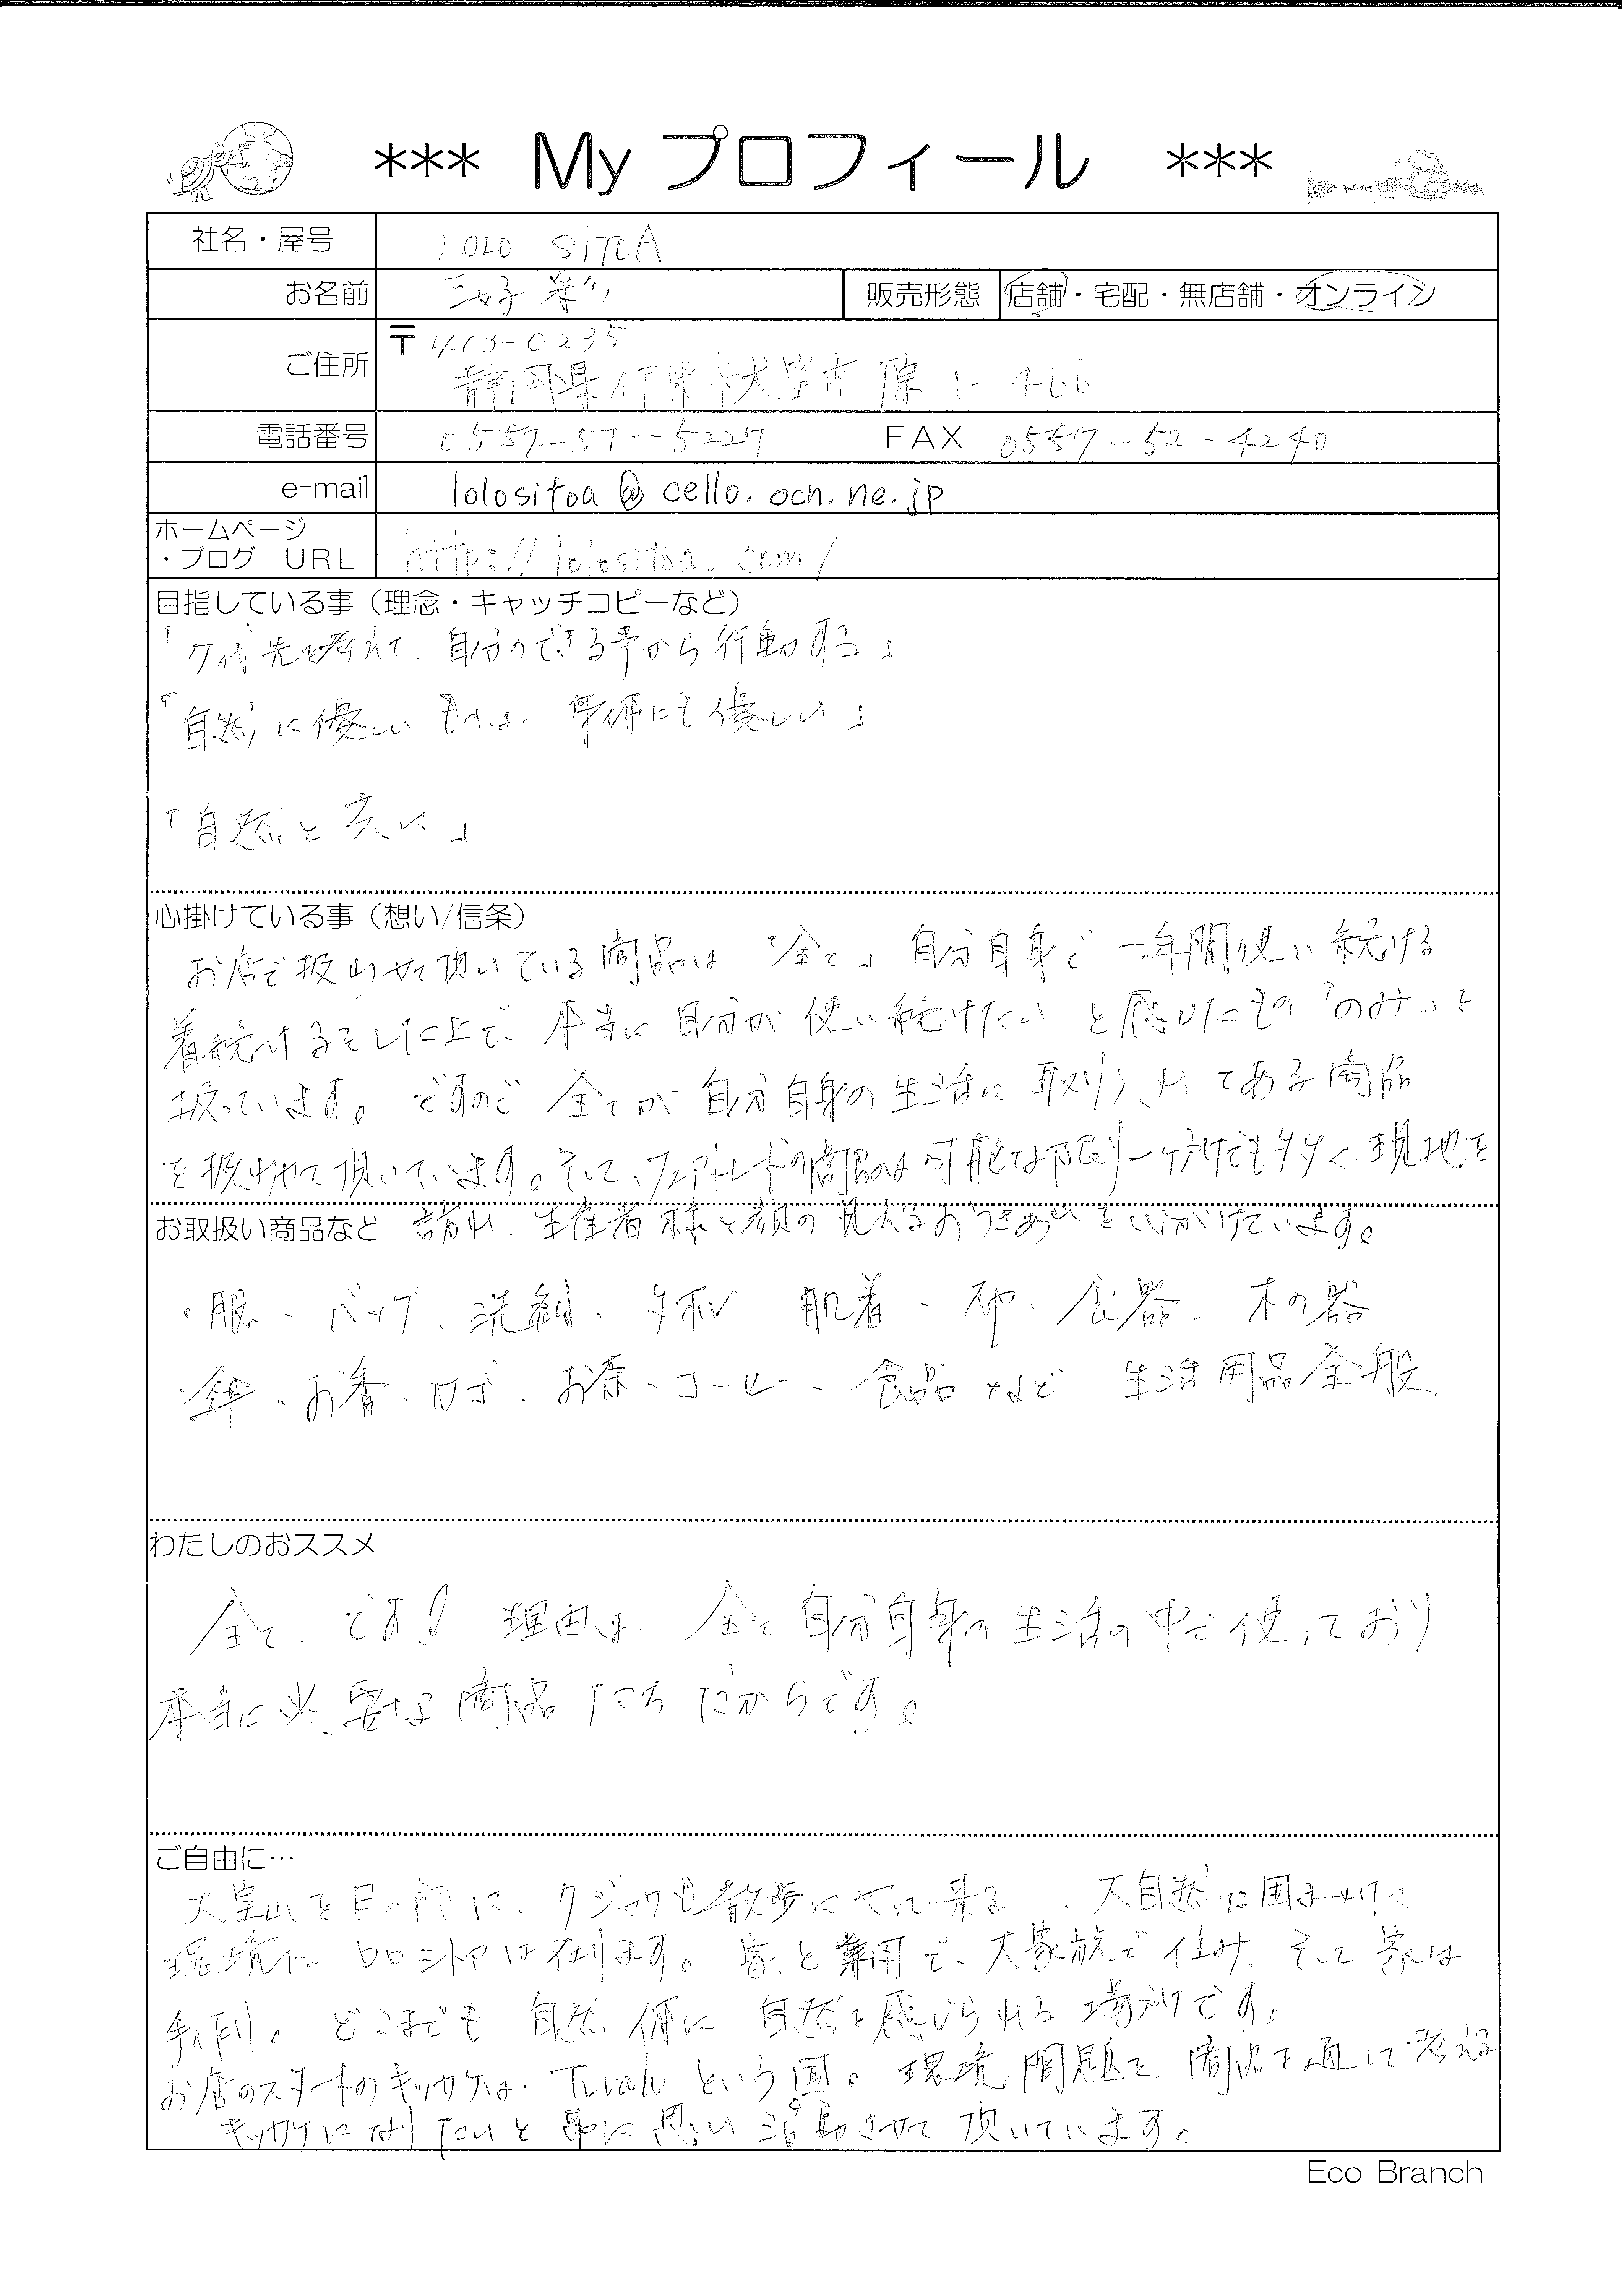 *** My プロフィール ***
社名・屋号 lOLO SiTOA
お名前
販売形態 店舗・宅配・無店舗・オンライン
ご住所 〒413-0235
静岡県伊東市大室高原 1-466
電話番号 0557-51-5227 FAX 0557-52-4240
e-mail lolositoa@cello.ocn.ne.jp
ホームページ
・ブログ URL http://lolositoa.com/
目指している事（理念・キャッチコピーなど）
「7代先を考えて、自分のできる事から行動する」
「自然に優しいものは、身体にも優しい」
「自然と共に」
心掛けている事（想い/信条）
お店で扱わせて頂いている商品は「全て」自分自身で一年間使い続ける
着続けるをした上で、本当に自分が使い続けたいと感じたもの「のみ」を
扱っています。ですので全てが自分自身の生活に取り入れてある商品
を扱わせて頂いています。そして、フェアトレードの商品は可能な限り一ヶ所でも多く、現地を
お取扱い商品など 訪れ、生産者様と顔の見えるおつきあいを心がけています。
・服・バッグ、洗剤、タオル、肌着・布、食器、木の器
傘、お香、カゴ、お茶、コーヒー、食品など 生活用品全般
わたしのおススメ
全て、です! 理由は、全て自分自身の生活の中で使っており
本当に必要な商品たちだからです。
ご自由に…
大室山を目の前に、クジャクも散歩にやって来る、大自然に囲まれた
環境にロロシトアは在ります。家と兼用で、大家族で住み、そして家は
手作り。どこまでも自然体に自然を感じられる場所です。
お店のスタートのキッカケは、Tuvaluという国。環境問題を商品を通して考える
キッカケになりたいと常に思い活動させて頂いています。
Eco-Branch